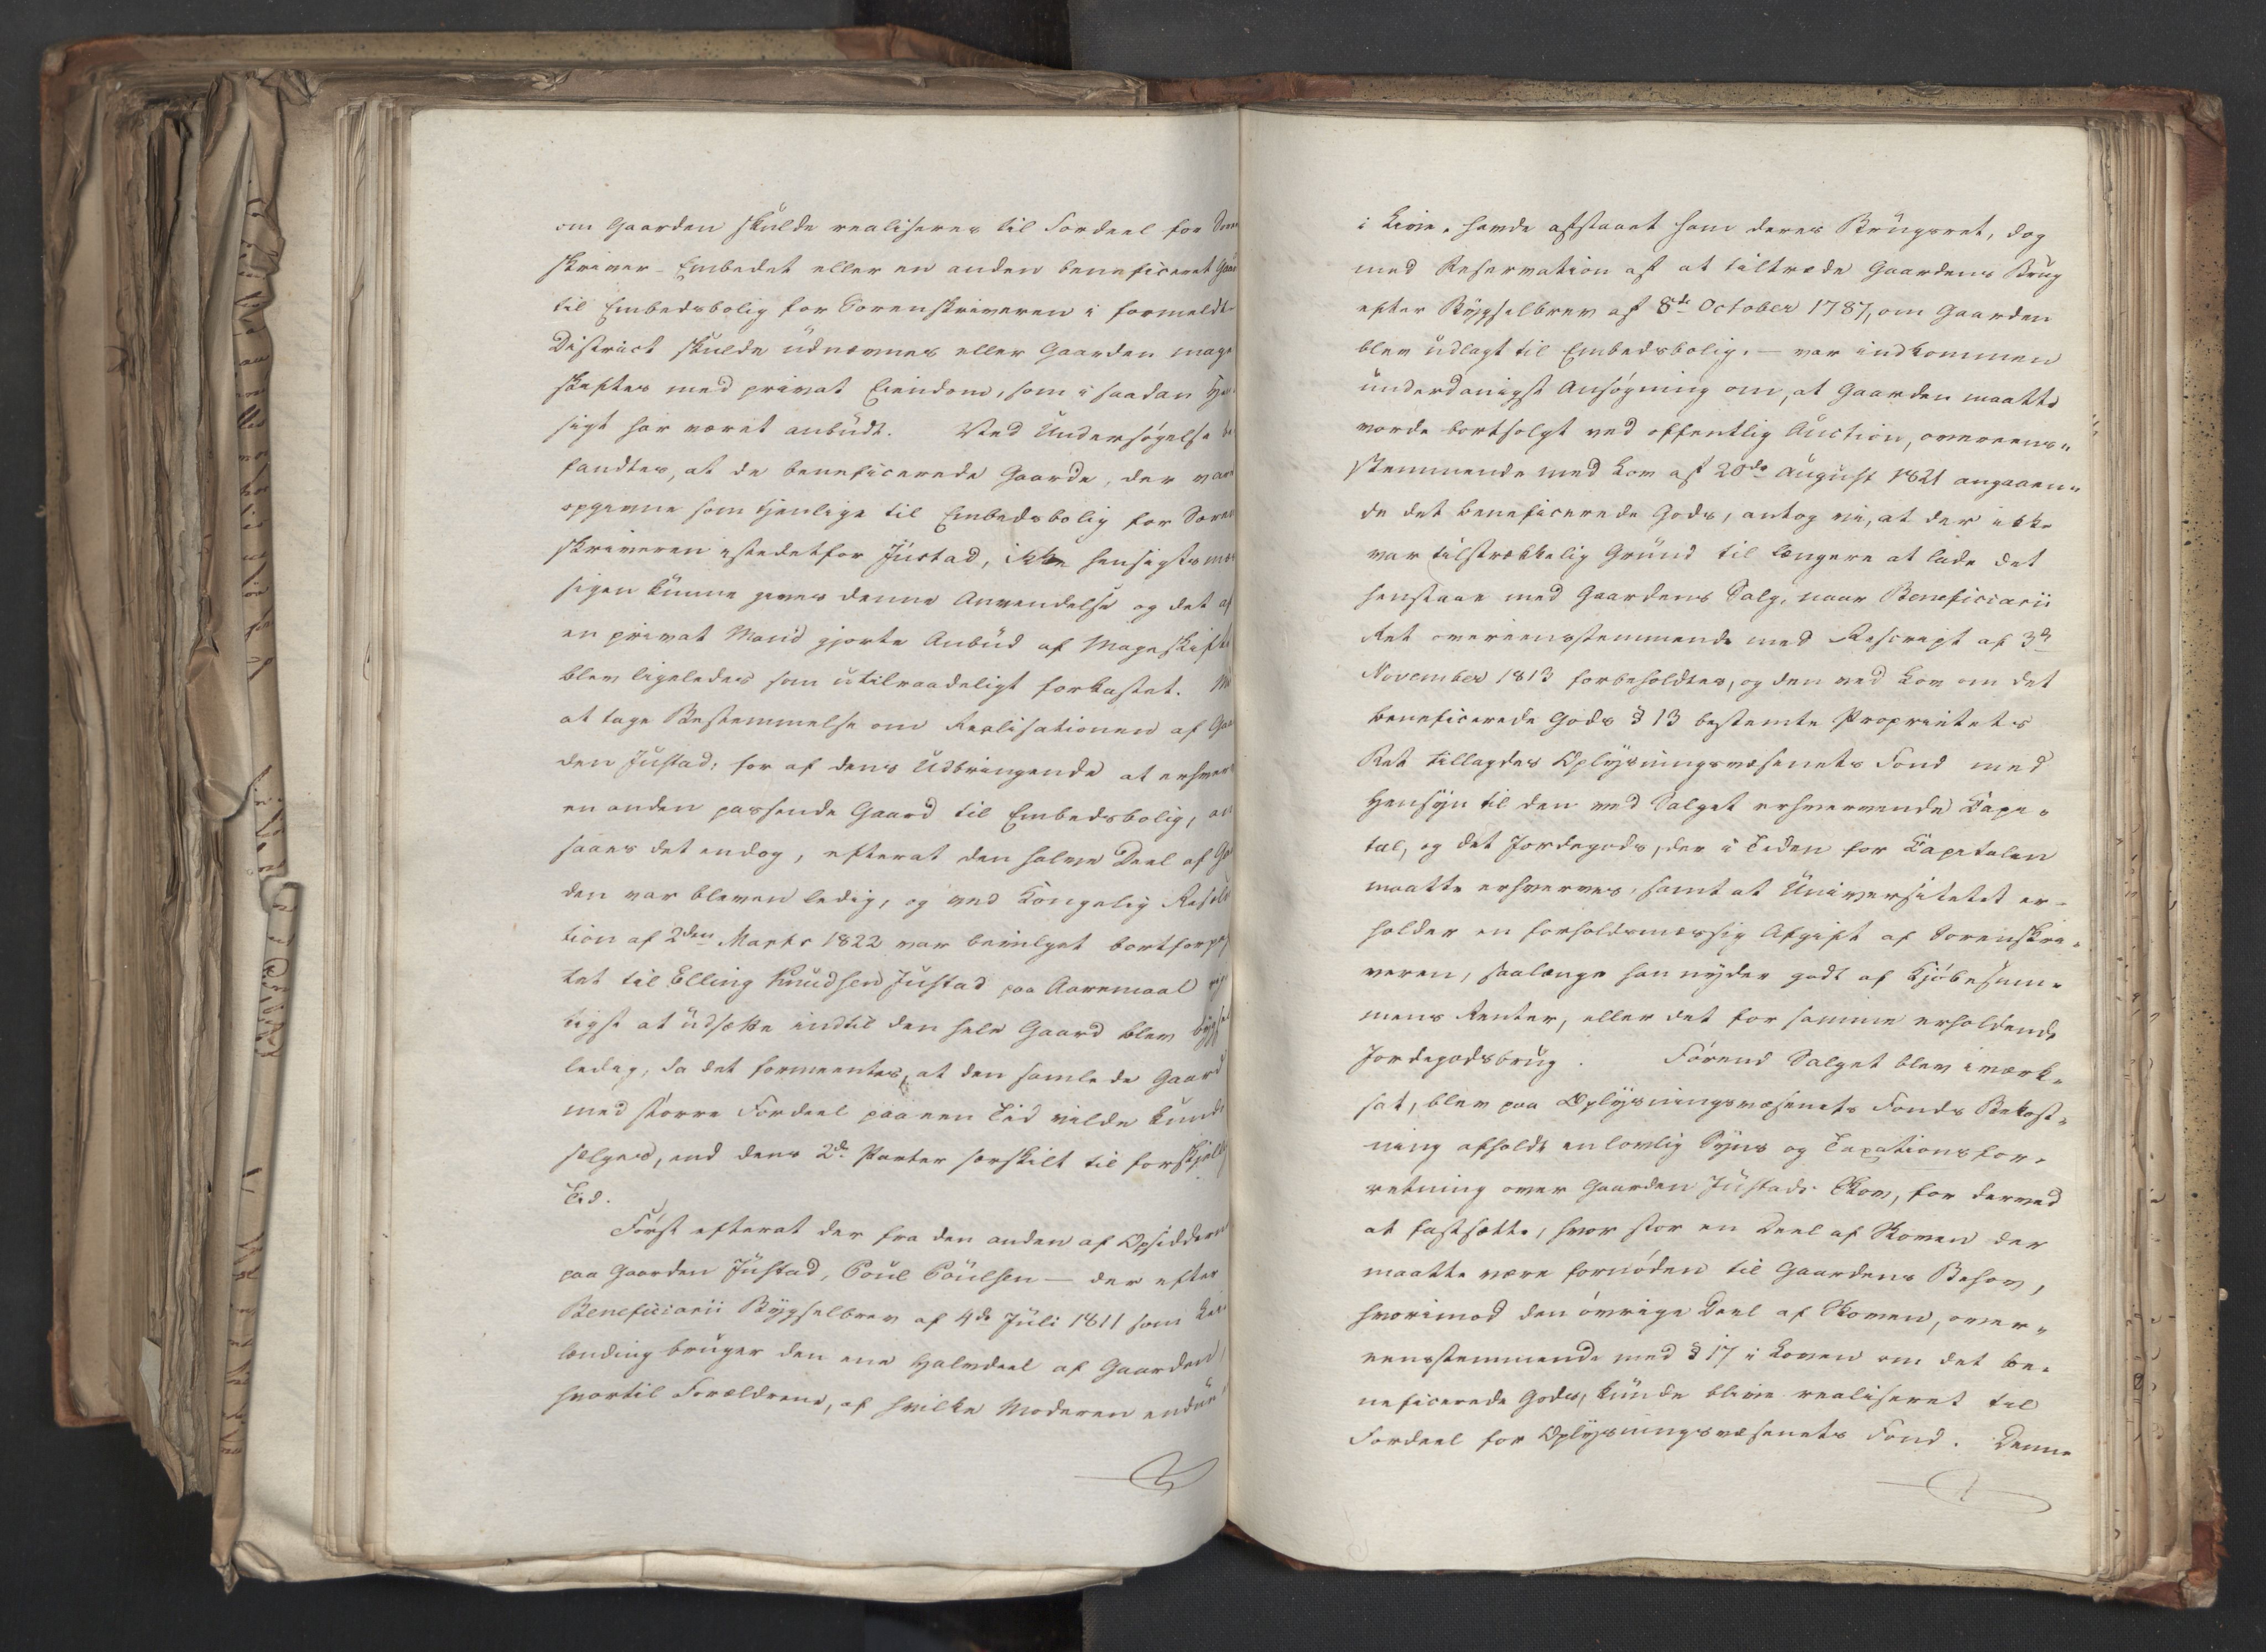 om Gaarden skulde realiseres til Fordeel for Soren
skriver-Embedet eller en anden beneficeret Gaard
til Embedsbolig for Sorenskriveren i formeldte
District skulde udnævnes eller Gaarden mage
skiftes med privat Eiendom, som i saadan Hen
sigt har været anbudt. Ved Undersøgelse be
fandtes, at de beneficerede Gaarde, der vare
opgivne som tjenlige til Embedsbolig for Soren
skriveren istedetfor Justad, ikke hensigtsmæs
sigen kunne gives denne Anvendelse og det af
en privat Mand gjorte Anbud af Mageskifte
blev ligeledes som utilraadeligt forkastet.
at tage Bestemmelse om Realisationen af Gaar
den Justad, for af dens Udbringende at erhverve
en anden passende Gaard til Embedsbolig, an
saaes det endog, efterat den halve Deel af Gaar
den var bleven ledig, og ved Kongelig Resolu
tion af 2den Marts 1822 var bevilget bortforpag
tet til Elling Knudsen Justad paa Aaremaal rig
tigst at udsætte indtil den hele Gaard blev bygsel
ledig, da det formeentes, at den samlede Gaard
med større Fordeel paa een Tid vilde kunde
sælges, end dens 2de Parter særskilt til forskjellig
Tid.
Først efterat der fra den anden af Opsidderne
paa Gaarden Justad, Poul Poulsen — der efter
Beneficiarii Bygselbrev af 4de Juli 1811 som Leie
lænding bruger den ene Halvdeel af Gaarden,
hvortil Forældrene, af hvilke Moderen endnu
i Live, havde afstaaet ham deres Brugsret, dog
med Reservation af at tiltræde Gaardens Brug
efter Bygselbrev af 8de October 1787, om Gaarden
blev udlagt til Embedsbolig. — var indkommen
underdanigst Ansøgning om, at Gaarden maatte
vorde bortsolgt ved offentlig Auction, overeens„
stemmende med Lov af 20de August 1821 angaaen„
de det beneficerede Gods, antog vi, at der ikke
var tilstrækkelig Grund til længere at lade det
henstaae med Gaardens Salg, naar Beneficiarii
Ret overeensstemmende med Rescript af 3de
November 1813 forbeholdtes, og den ved Lov om det
beneficerede Gods § 13 bestemte Proprietets
Ret tillagdes Oplysningsvæsenets Fond med
Hensyn til den ved Salget erhvervende Capi„
tal, og det Jordegods, der i Tiden for Capitalen
maatte erhverves, samt at Universitetet er-
holder en forholdsmæssig Afgift af Sorenskri„
veren, saalænge han nyder godt af Kjøbesum„
mens Renter, eller det for samme erholdende
Jordegodsbrug. Førend Salget blev iværk„
sat, blev paa Oplysningsvæsenets Fonds Bekost„
ning afholdt en lovlig Syns og Taxationsfor„
retning over Gaarden Justads Skov, for derved
at fastsætte, hvor stor en Deel af Skoven der
maatte være fornøden til Gaardens Behov,
hvorimod den øvrige Deel af Skoven, over„
eensstemmende med § 17 i Loven om det be„
neficerede Gods, kunde blive realiseret til
Fordeel for Oplysningsvæsenets Fond. Denne